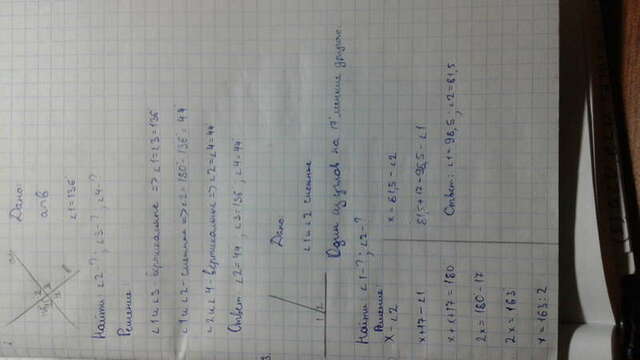 Дано:
a∩b
∠1=136
Найти: ∠2-?; ∠3-?; ∠4-?
Решение:
∠1 и ∠3 - вертикальные => ∠1=∠3=136
∠1 и ∠2 - смежные => ∠2=180-136=44
∠2 и ∠4 - вертикальные => ∠2=∠4=44
Ответ: ∠2=44; ∠3=136; ∠4=44
3.
Дано:
∠1 и ∠2 смежные
1 2
Один из углов на 17° меньше другого.
Найти: ∠1-?; ∠2-?
Решение:
x - ∠2
x+17 - ∠1
x+x+17=180
2x=180-17
2x=163
x=163:2
x=81,5 - ∠2
81,5+17=98,5 - ∠1
Ответ: ∠1=98,5; ∠2=81,5